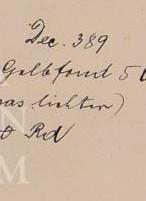 Dec. 389
Gelbfond 5
lichter)
Rd